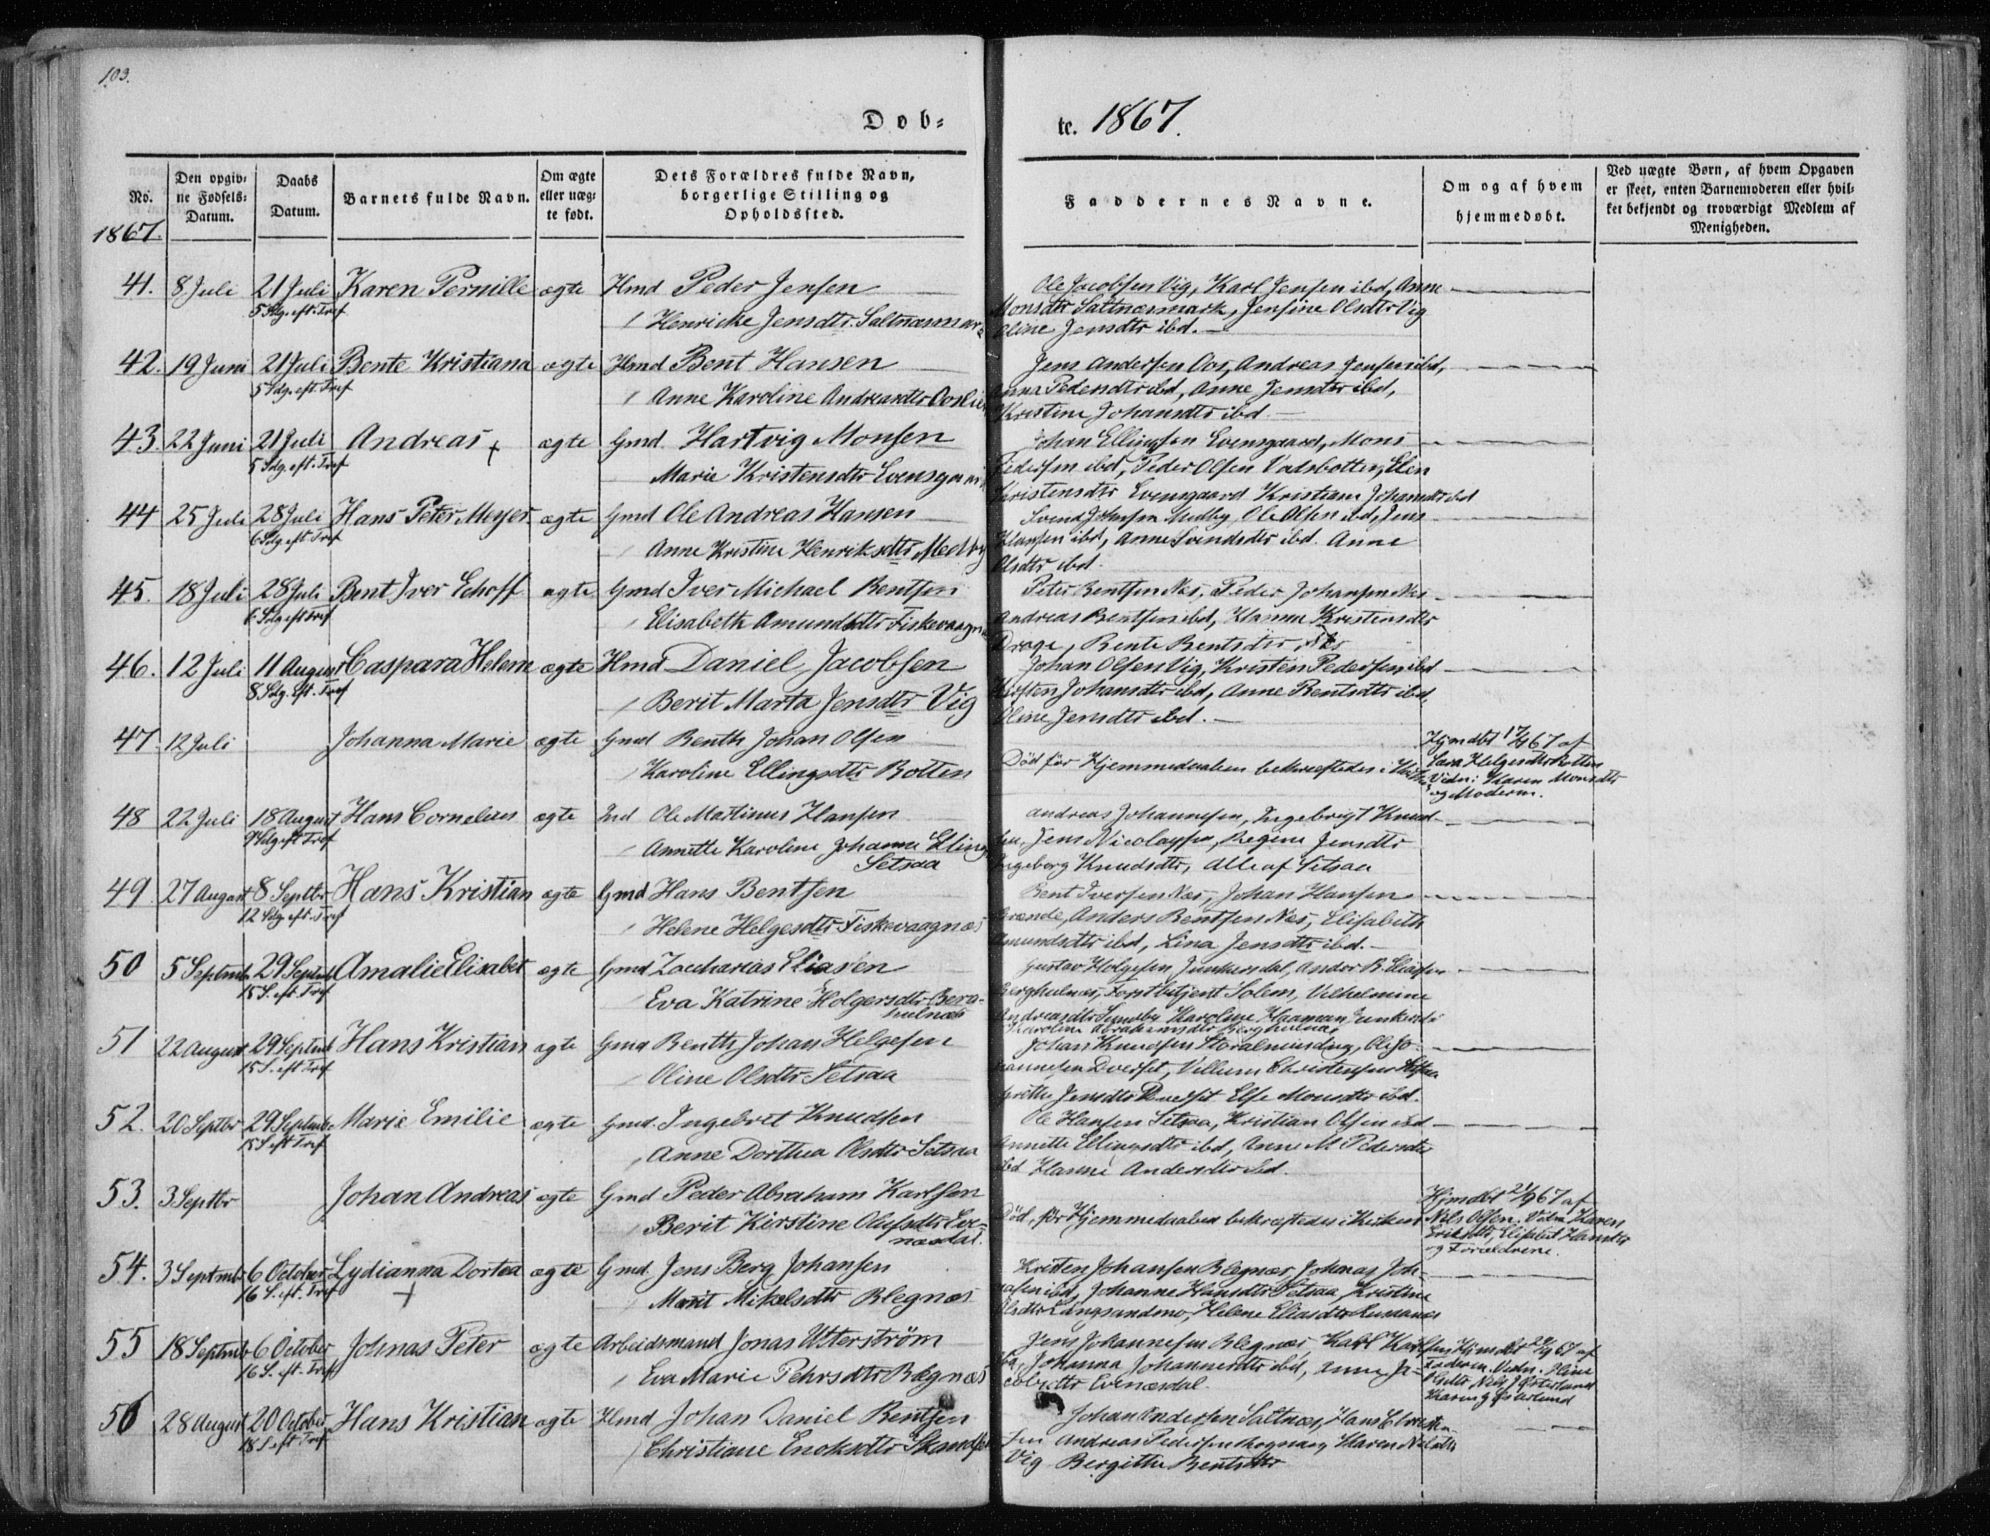 103.
Døb-
te. 1867.
No.
Den opgiv-
ne Fødsels-
Datum.
Daabs
Datum.
Barnets fulde Navn.
Om ægte
eller uæg-
te født.
Dets Forældres fulde Navn,
borgerlige Stilling og
Opholdssted.
Faddernes Navne.
Om og af hvem
hjemmedøbt.
Ved uægte Børn, af hvem Opgaven
er skeet, enten Barnemoderen eller hvil-
ket bekjendt og troværdigt Medlem af
Menigheden.
1867.
41. 8 Juli 21 Juli Karen Pernille ægte Hmd Peder Jensen Ole Jacobsen Vig, Karl Jensen ibd, Anne
5 Sdg. eft. Tref Henrikke Jensdtr. Saltnæsmark Monsdtr Saltnæsmark, Jensine Olsdtr Vig
Oline Jensdtr ibd.
42. 19 Juni 21 Juli Bente Kristiana ægte Hmd Bent Hansen Jens Andersen Oos, Andreas Jensen ibd,
5 Sdg. eft. Tref Anne Karoline Andreasdtr Anna Pedersdtr ibd, Anne Jensdtr ibd,
Kristine Johansdtr ibd
43. 22 Juni 21 Juli Andreas + ægte Gmd. Hartvig Monsen Johan Ellingsen Evensgaard, Mons
5 Sdg. eft. Tref Marie Kristensdtr Evensgaard Pedersen ibd, Peder Olsen Vadsbotten, Elen
Kristensdtr Evensgaard Kristiane Johansdtr ibd
44 25 Juli 28 Juli Hans Peter Meyer ægte Gmd Ole Andreas Hansen Svend Johnsen Medby, Ole Olsen ibd, Jens
6 Sdg. eft. Tref Anne Kristine Henriksdtr Medby Hansen ibd, Anne Svendsdtr ibd. Anne
Olsdtr ibd.
45. 18 Juli 28 Juli Bent Iver Schoff ægte Gmd Iver Michael Bentsen Peter Bentsen Næs, Peder Johansen Næs
6 Sdg eft Tref Elisabeth Amundsdtr Fiskevaagnæs Andreas Bentsen ibd, Hanna Kristensdtr
Drage, Bente Bentsdtr Næs
46. 12 Juli 11 August Caspara Helene ægte Hmd Daniel Jacobsen Johan Olsen Vig, Kristen Pedersen ibd
8 Sdg. eft. Tref Berit Marta Jensdtr Vig Kirsten Johansdtr ibd, Anne Bentsdtr ibd,
Oline Jensdtr ibd.
47. 12 Juli Johanna Marie ægte Gmd Benth Johan Olsen Hjmdbt 17/7 67 af
Karoline Ellingsdtr Botten Død før Hjemmedaaben bekræftedes i Kirken Sara Helgesdtr Botten
Vidn: Karen Monsdtr
og Moderen.
48 22 Juli 18 August Hans Cornelius ægte Ind Ole Martinus Hansen Andreas Johannesen, Ingebrigt Knud-
9 Sdg eft Tref Annette Karoline Johanna Elling sen, Jens Nicolaysen, Regine Jensdtr
Setsaa Ingeborg Knudsdtr, Alle af Setsaa
49. 27 August 8 Septbr Hans Kristian ægte Gmd Hans Bentsen Bent Iversen Næs, Johan Hansen
12 Sdg. eft. Tref Helene Helgesdtr Fiskevaagnæs Grande, Anders Bentsen Næs, Elisabeth
Amundsdtr ibd, Lina Jensdtr ibd.
50 5 Septembr 29 Septmb Amalie Elisabet ægte Gmd Zacharias Eliasen Gustav Holgersen Junkersdal, Andor B. Eliasen
15 S. eft. Tref Eva Katrine Holgersdtr Berg- Berghulnæs, Forstbetjent Solem, Vilhelmine
hulnæs Andreasdtr Sundby Karoline Haaman,
Karoline Abrahamsdtr Berghulnæs
51 22 August 29 Septmb Hans Kristian ægte Gmd Benth Johan Helgesen Johan Knudsen Storalmindng, Ole Jo-
15 S. eft Tref Oline Olsdtr Setsaa hannesen Dverset, Villum Christensen
Grethe Jensdtr Dverset Else Monsdtr ibd.
52. 20 Septbr 29 Septembr Marie Emilie ægte Gmd. Ingebret Knudsen Ole Hansen Setsaa, Kristian Olsen ibd
15 S. eft Tref Anne Dorthea Olsdtr Setsaa Annette Ellingsdtr ibd, Anne M Pedersdtr
ibd Hanne Andersdtr ibd.
53. 3 Septbr Johan Andreas ægte Gmd Peder Abraham Karlsen Hjmdbt 21/9 67 af
Berit Kirstine Olufsdtr Eve- Død, før Hjemmedaaben bekræftedes i Kirken Nils Olsen. Vidn Karen
næsdal. Eriksdtr, Elisabet Hansdtr
og Forældrene.
54. 3 Septmb 6 October Lydianna Dortea ægte Gmd. Jens Berg Johansen Kristen Johansen Blegnæs, Johnas Joh-
16 S. eft. Tref + Marit Mikelsdtr Blegnæs nasen ibd, Johanne Hansdtr Setsaa, Kristine
Olsdtr Langsandmo, Helene Eliasdtr Rusaanæs
55 18 Septmb 6 October Johnas Peter ægte Arbeidsmand Jonas Utterström Jens Johannesen Blegnæs, Karl Karlsen Hjmdbt 22/9 67 af
16 S. eft. Tref Eva Marie Pehrsdtr Blegnæs ibd, Johanna Johannesdtr ibd, Anne Ja- Faderen. Vidn. Oline
cobsdtr Evenæsdal. Olsdtr, Nils J Østerlund
Karen J Østerlund
56 28 August 20 October Hans Kristian ægte Hmd Johan Daniel Bentsen Johan Andersen Saltnæs, Hans
18 S eft Tref Christiane Enoksdtr sen Andreas Pedersen Rognaeng Karen Nilsdtr
Vig Bergitte Bentsdtr